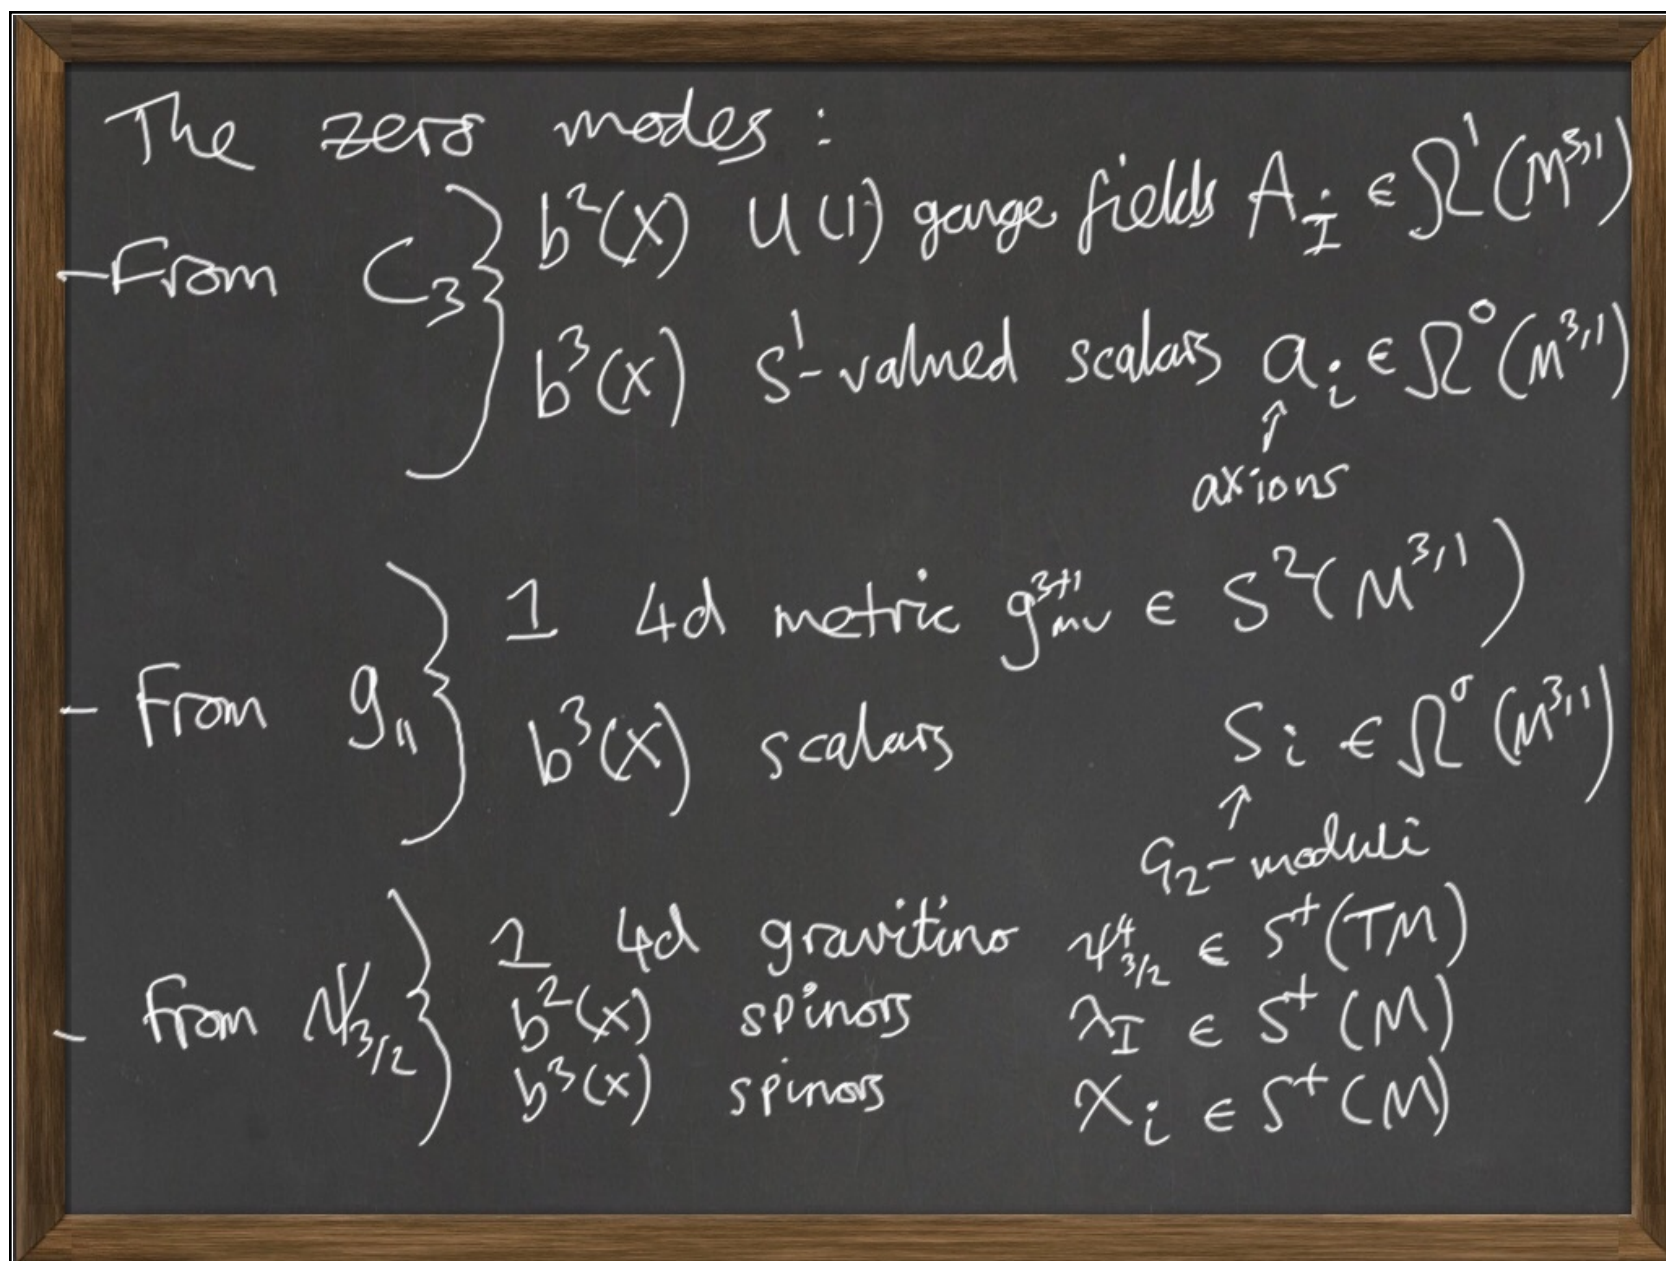 The zero modes :
- From C₃ } b²(X) U(1) gauge fields A_I ∈ Ω¹(M³,¹)
b³(X) S¹-valued scalars a_i ∈ Ω⁰(M³,¹)
↑
axions
- From g₁₁ } 1 4d metric g_μν³⁺¹ ∈ S²(M³,¹)
b³(X) scalars S_i ∈ Ω⁰(M³,¹)
↑
G₂-moduli
- From Ψ_3/2 } 1 4d gravitino ψ⁴_3/2 ∈ S⁺(TM)
b²(X) spinors λ_I ∈ S⁺(M)
b³(X) spinors χ_i ∈ S⁺(M)